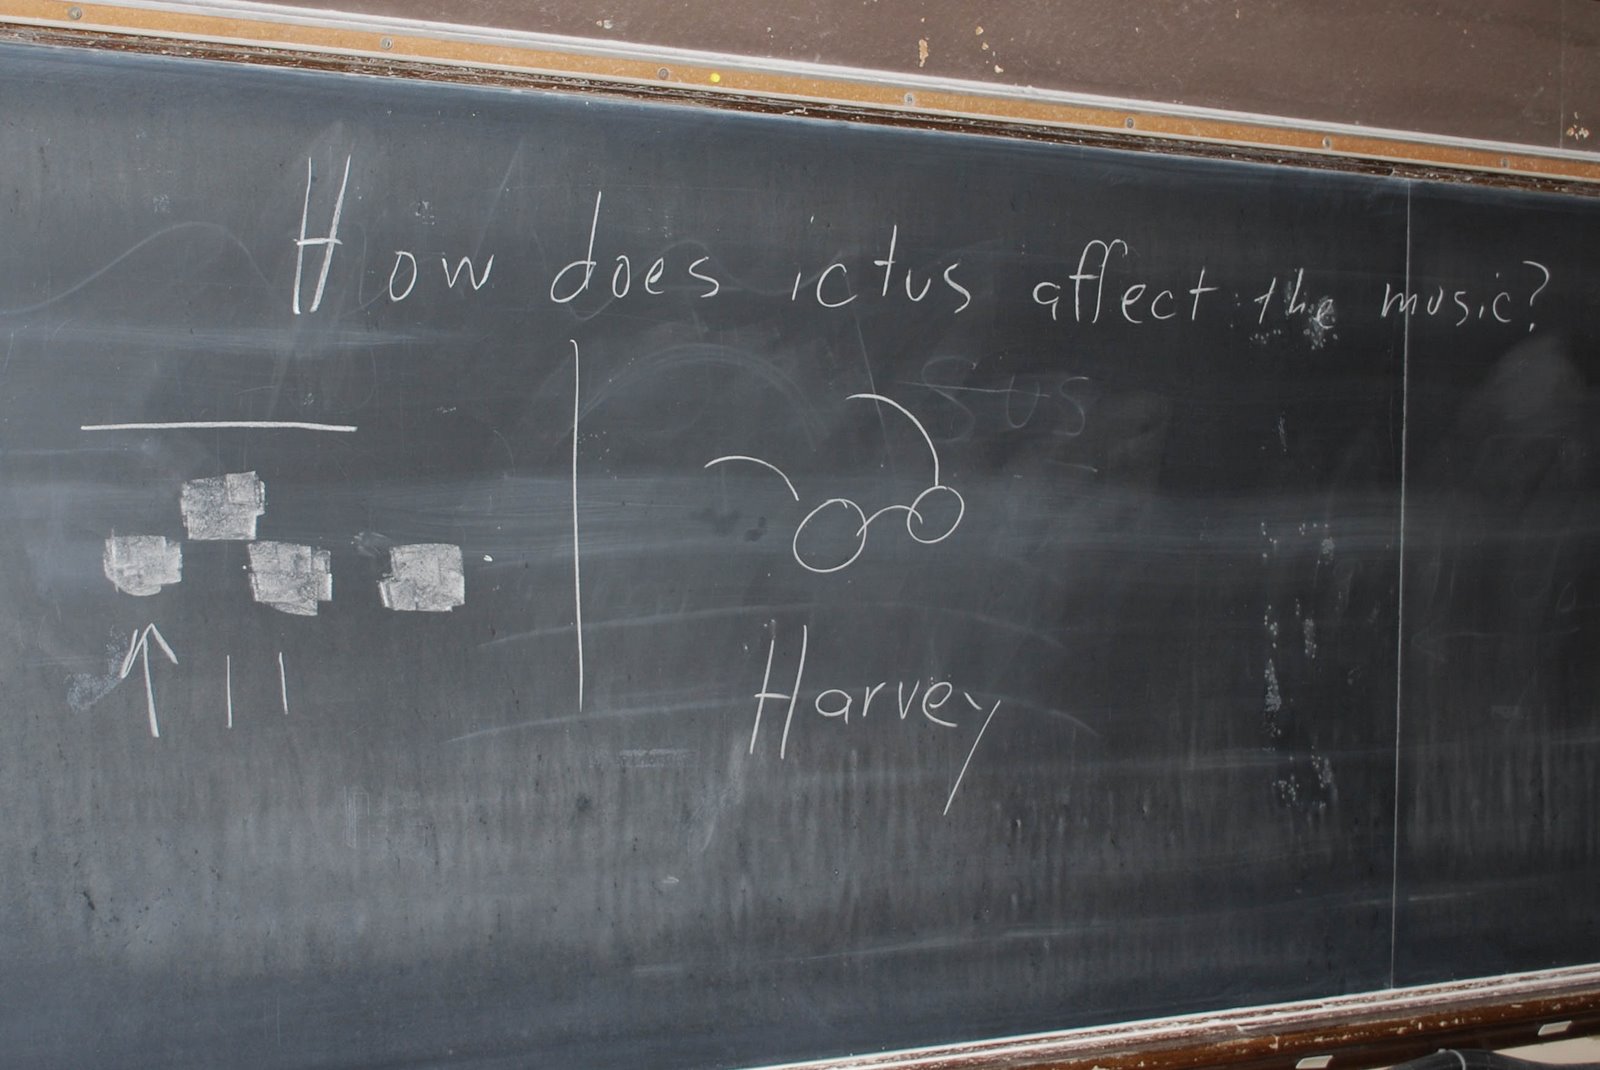 How does ictus affect the music?
Harvey